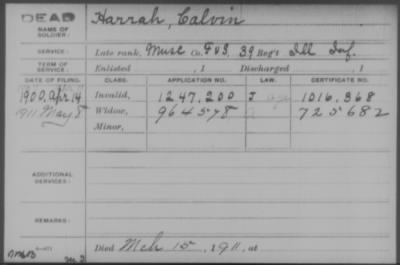 DEAD
NAME OF SOLDIER: Harrah, Calvin
SERVICE: Late rank, Musc Co. F & S, 39 Reg't Ill Inf.
TERM OF SERVICE: Enlisted , 1 Discharged , 1
DATE OF FILING. CLASS. APPLICATION NO. LAW. CERTIFICATE NO.
1900, Apr 14 Invalid, 1247,200 J 1016,868
1911 May 8 Widow, 964578 725682
Minor,
ADDITIONAL SERVICES:
REMARKS:
Died Mch 15, 1911, at